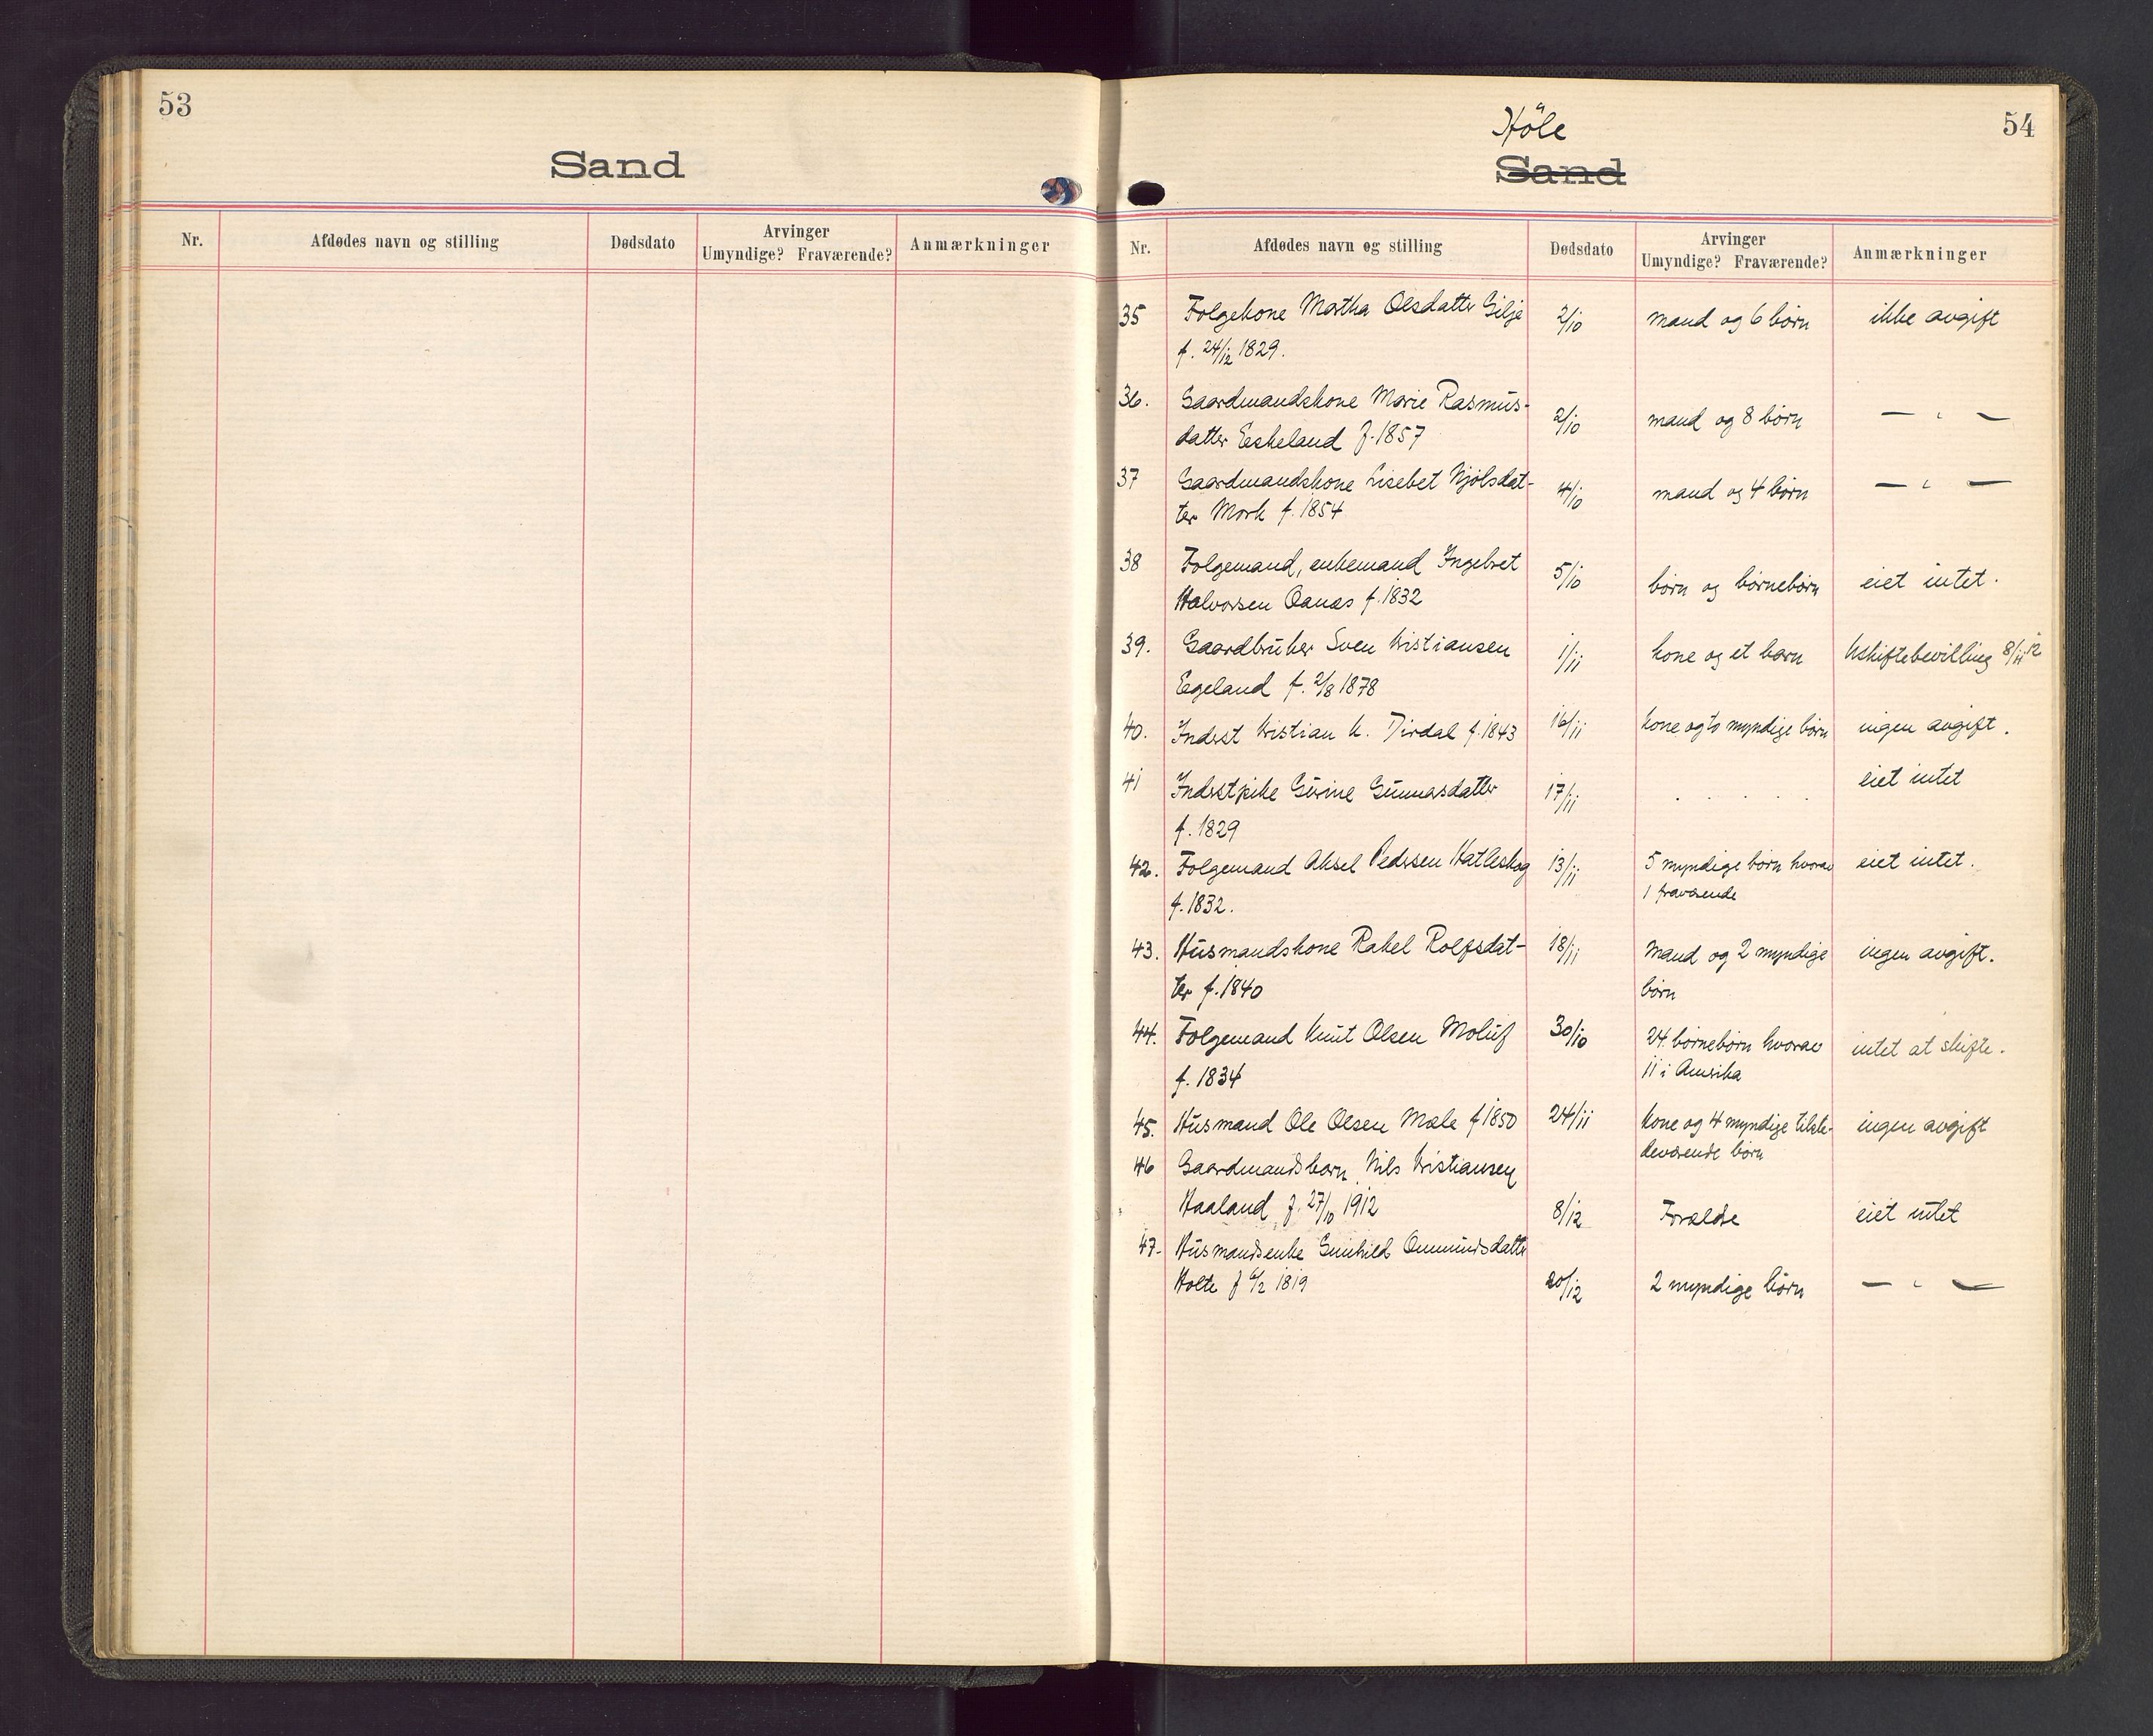 53
Sand
Nr. Afdødes navn og stilling Dødsdato Arvinger Umyndige? Fraværende? Anmærkninger
54
Höle
Sand
Nr. Afdødes navn og stilling Dødsdato Arvinger Umyndige? Fraværende? Anmærkninger
35 Folgekone Martha Olsdatter Gilje 2/10 mand og 6 børn ikke avgift
f. 24/12 1829.
36. Gaardmandskone Marie Rasmus-
datter Eskeland f. 1857 2/10 mand og 8 børn — " —
37 Gaardmandskone Lisebet Njølsdat- 4/10 mand og 4 børn — " —
ter Mork f. 1854
38 Folgemand, enkemand Ingebret 5/10 børn og børnebørn eiet intet.
Halvorsen Oanæs f. 1832
39. Gaardbruker Sven Kristiansen 1/11 kone og et barn Uskiftebevilling 8/11 12
Egeland f. 2/8 1878
40. Inderst Kristian K. Dirdal f. 1843 16/11 kone og to myndige børn ingen avgift.
41 Inderstpike Gurine Gunnarsdatter 17/11 . . . . eiet intet
f. 1829
42. Folgemand Aksel Pedersen Hatleskog 13/11 5 myndige børn hvorav eiet intet.
f. 1832. 1 fraværende
43. Husmandskone Rakel Rolfsdat- 18/11 Mand og 2 myndige ingen avgift.
ter f. 1840 børn
44. Folgemand Knut Olsen Moluf 30/10 24 børnebørn hvorav intet at skifte.
f. 1834 11 i Amerika
45. Husmand Ole Olsen Mæle f 1850 24/11 kone og 4 myndige tilste- ingen avgift
deværende børn
46 Gaardmandsbarn Nils Kristiansen
Haaland f. 27/10 1912 8/12 Forældre eiet intet
47. Husmandsenke Gunhild Ommundsdatter
Holte f 6/2 1819 20/12 2 myndige børn — " —